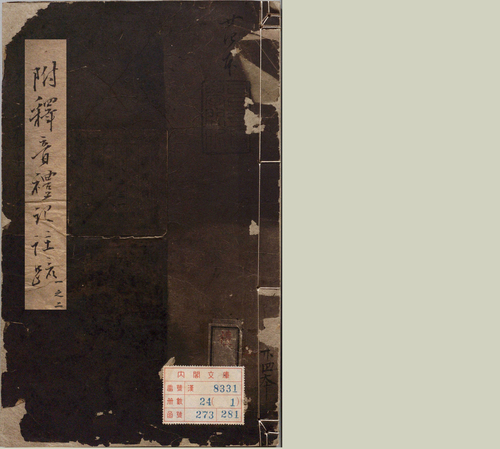 附釋音禮記註疏
一之二
內閣文庫
番號 漢 8331
冊數 24(1)
函號 273 281